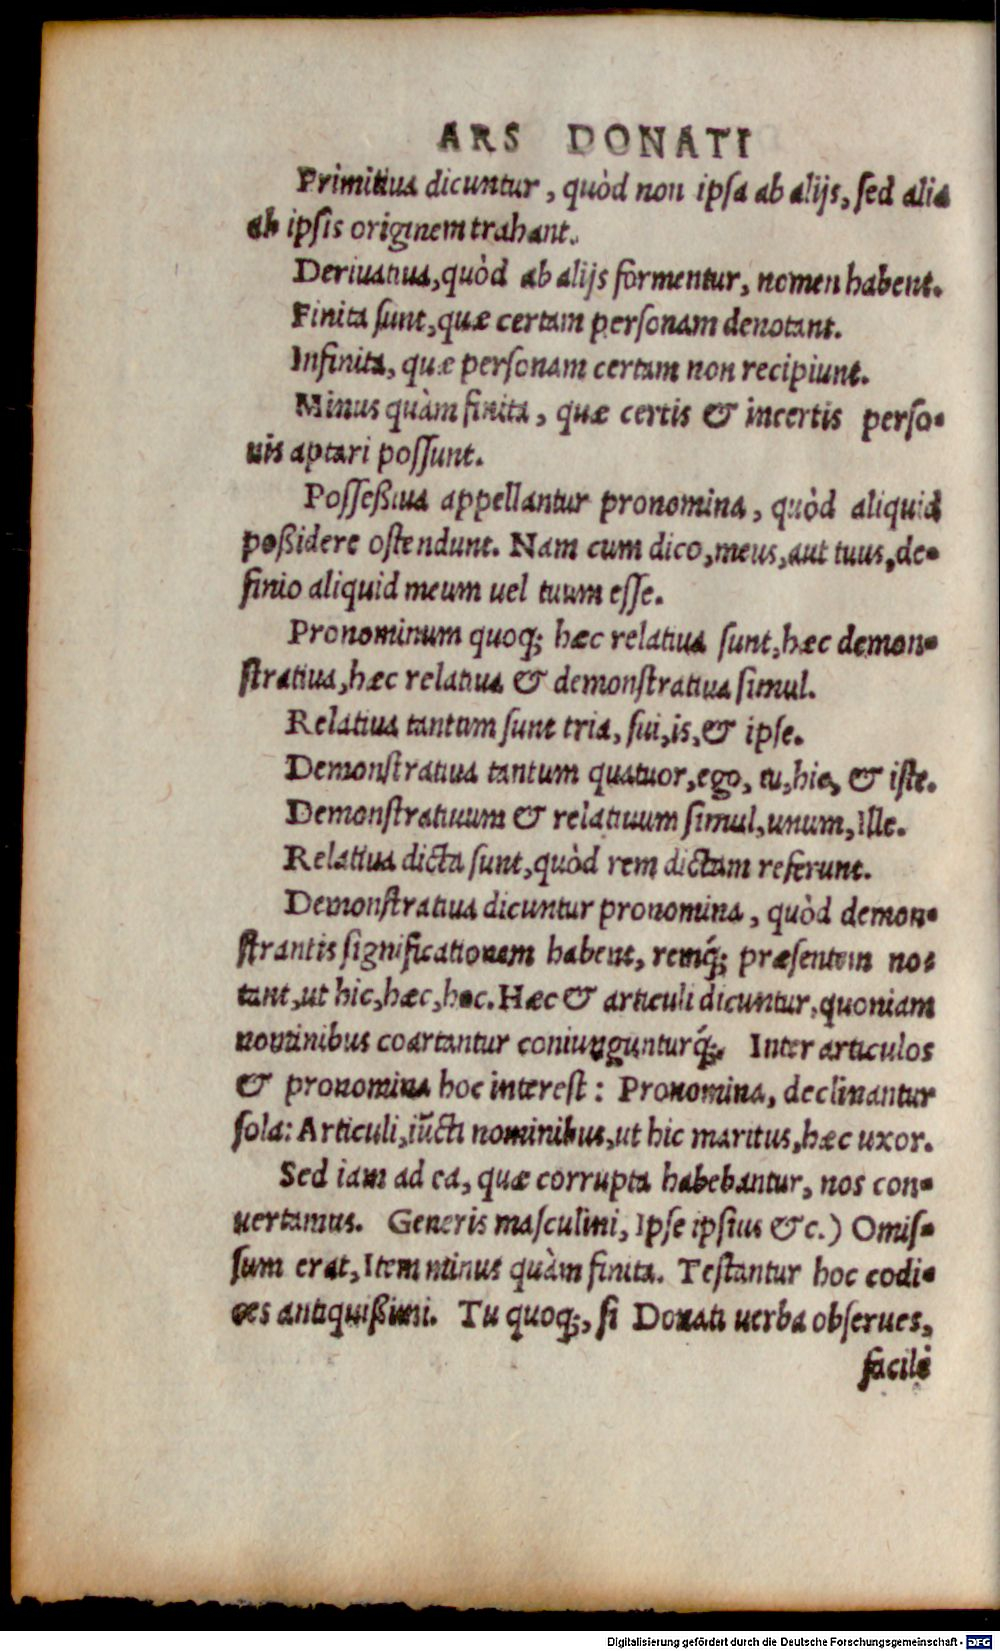 ARS DONATI
Primitiua dicuntur, quòd non ipſa ab alijs, ſed alia
ab ipſis originem trahant.
Deriuatiua, quòd ab alijs formentur, nomen habent.
Finita ſunt, quæ certam perſonam denotant.
Infinita, quæ perſonam certam non recipiunt.
Minus quàm finita, quæ certis & incertis perſo-
nis aptari poſſunt.
Poſſeßiua appellantur pronomina, quòd aliquid
poßidere oſtendunt. Nam cum dico, meus, aut tuus, de-
finio aliquid meum uel tuum eſſe.
Pronominum quoq; hæc relatiua ſunt, hæc demon-
ſtratiua, hæc relatiua & demonſtratiua ſimul.
Relatiua tantum ſunt tria, ſui, is, & ipſe.
Demonſtratiua tantum quatuor, ego, tu, hic, & iſte.
Demonſtratiuum & relatiuum ſimul, unum, Ille.
Relatiua dicta ſunt, quòd rem dictam referunt.
Demonſtratiua dicuntur pronomina, quòd demon-
ſtrantis ſignificationem habent, remq́; præſentem no-
tant, ut hic, hæc, hoc. Hæc & articuli dicuntur, quoniam
nominibus coartantur coniungunturq́;. Inter articulos
& pronomina hoc intereſt: Pronomina, declinantur
ſola: Articuli, iũcti nominibus, ut hic maritus, hæc uxor.
Sed iam ad ea, quæ corrupta habebantur, nos con-
uertamus. Generis maſculini, Ipſe ipſius &c.) Omiſ-
ſum erat, Item minus quàm finita. Teſtantur hoc codi-
ces antiquißimi. Tu quoq;, ſi Donati uerba obſerues,
facilè
Digitalisierung gefördert durch die Deutsche Forschungsgemeinschaft - DFG